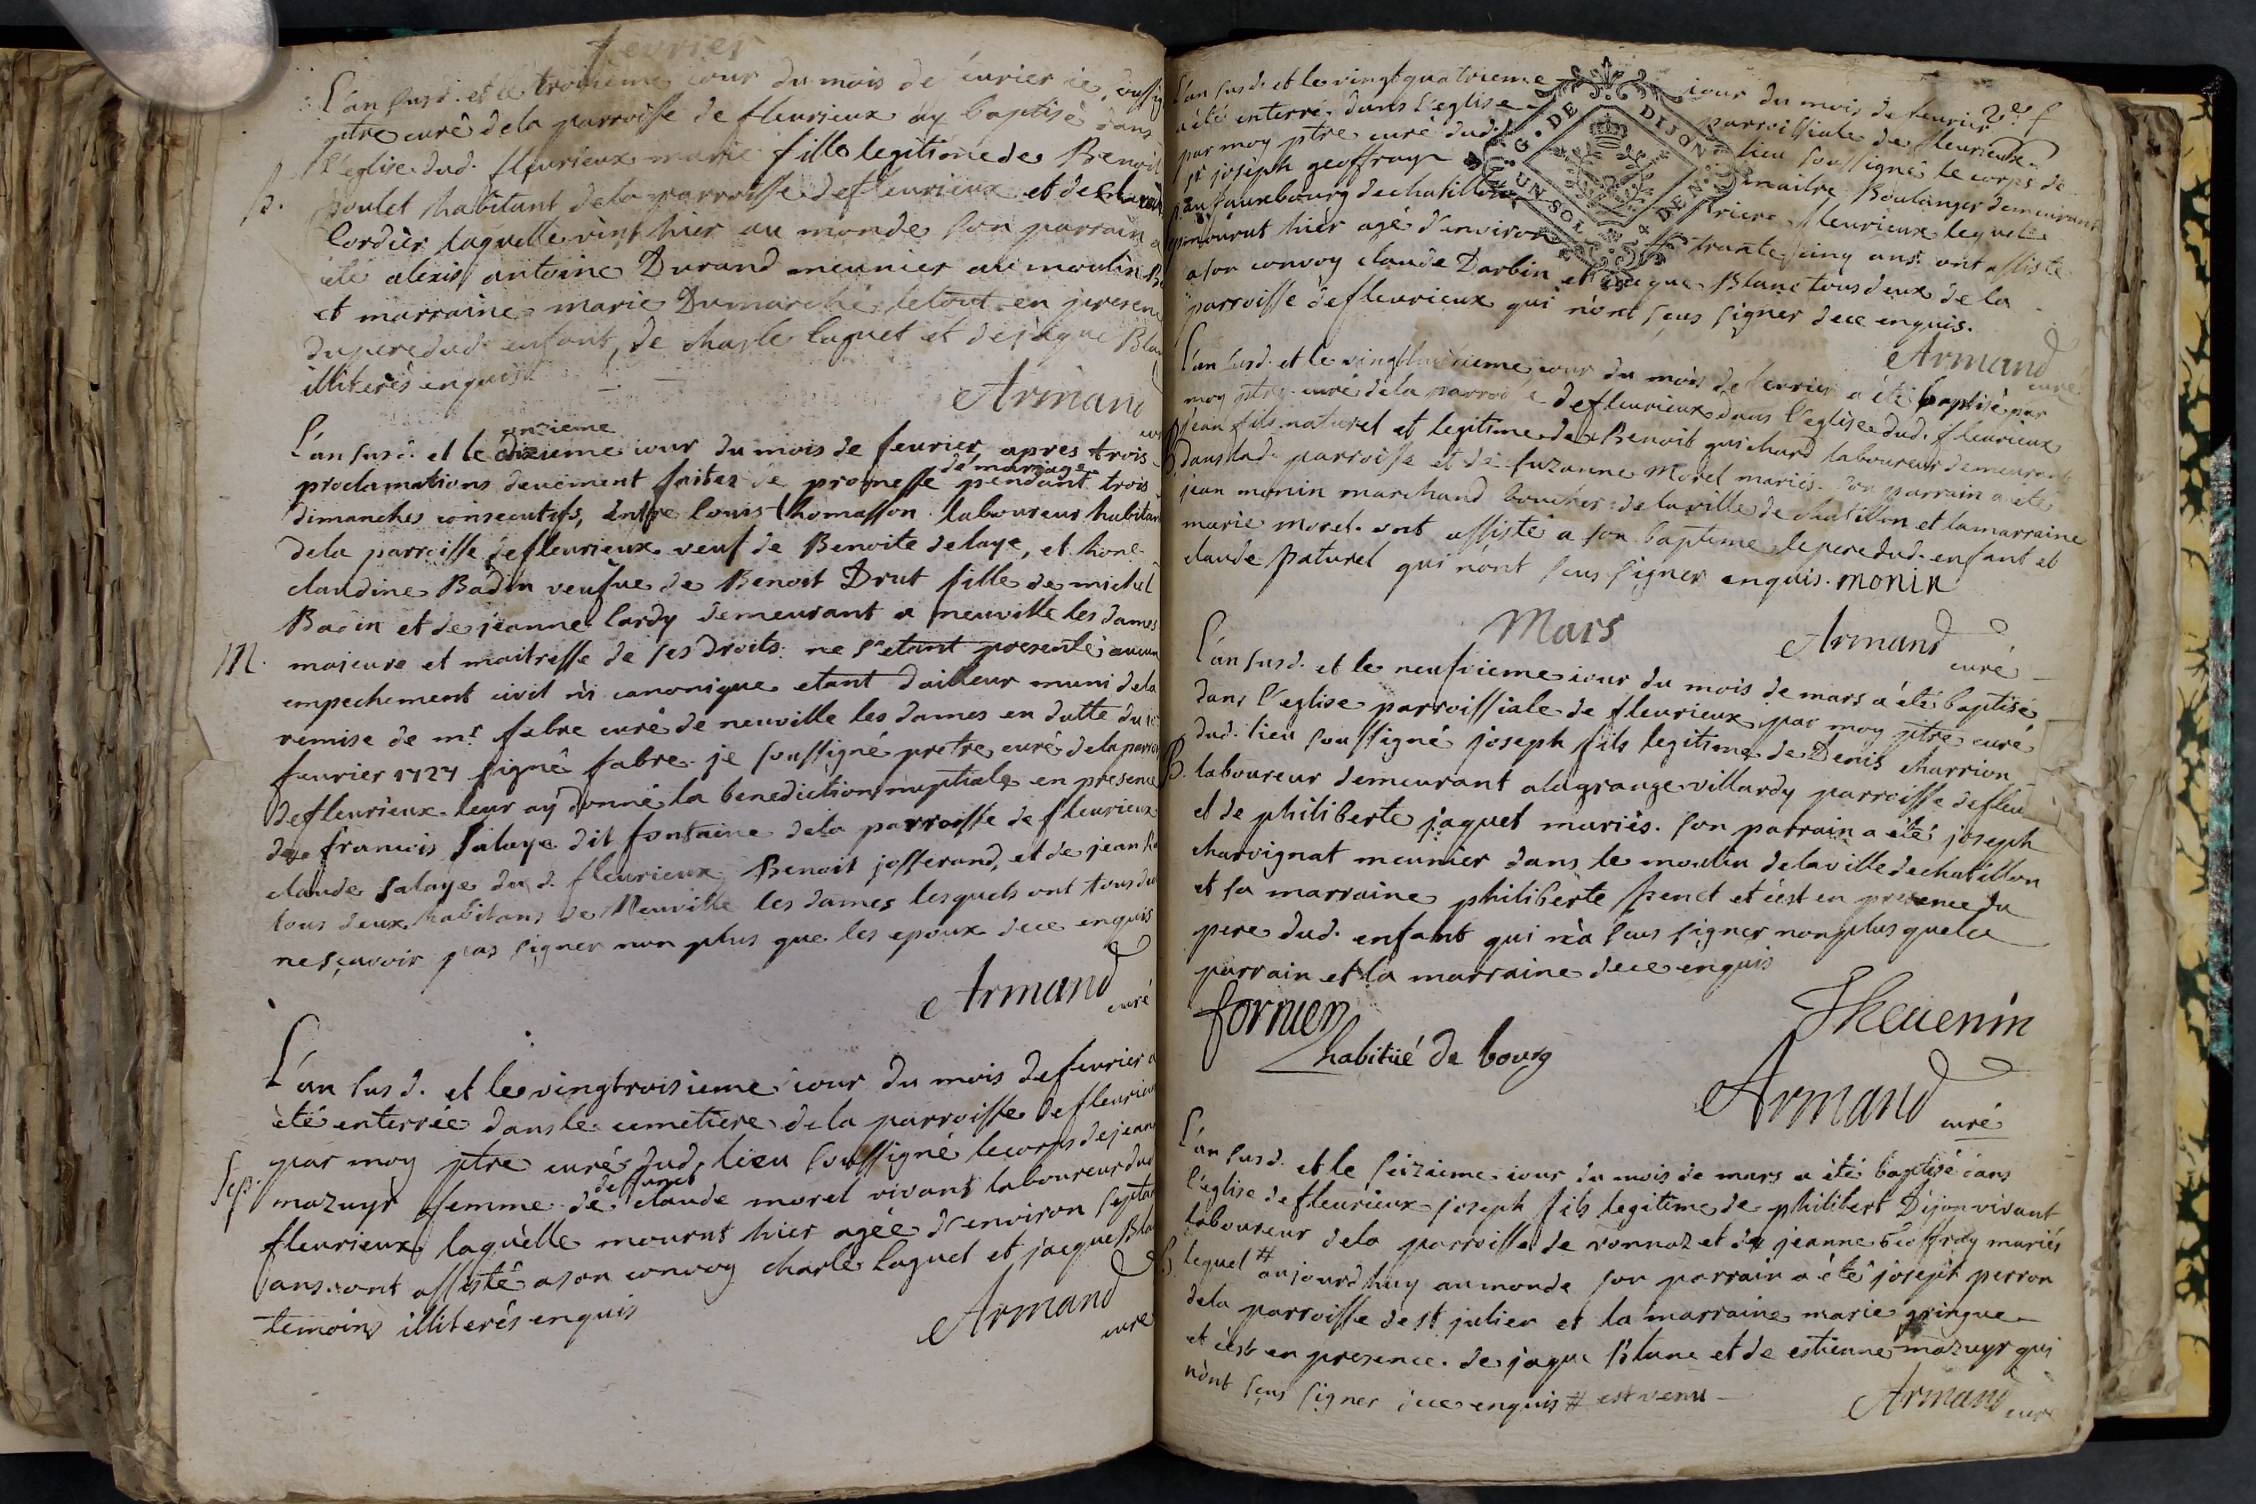 fevrier
L'an susd. et le troisieme iour du mois de
ptre curé dela parroisse de fleurieux ay baptisé dans
l'eglise dud. fleurieux marie fille legitime de Benoit
B. poulet habitant dela parroisse de fleurieux et de
Cordier laquelle vint hier au monde son parrain a
été alexis antoine Durand meunier au moulin
et marraine marie Dumarché letout en presen
du pere dud. enfant, de charle laquet et de jâque Blan
illiterés enquis
Armand
curé
L'an susd. et le onzieme iour du mois de feurier apres trois
proclamations deuëment faites de promesse de mariage pendant trois
dimanches consecutifs, entre louis thomasson laboureur habitan
dela parroisse de fleurieux veuf de Benoite delaye, et hone
claudine Badin veufue de Benoit Drut fille de michel
Badin et de jeanne lardy demeurant a neuville les dames
M. majeure et maitresse de ses droits ne s'etant presenté aucun
empechement civil ni canonique etant dailleur muni dela
remise de mr. fabre curé de neuville les dames en datte du
feurier 1727 signé fabre. je soussigné pretre curé dela parroi
de fleurieux leur aÿ donné la benediction nuptiale en presence
de francois salaye dit fontaine dela parroisse de fleurieux
claude salaye dud. fleurieux Benoit josserand, et de jean
tous deux habitans de Neuville les dames lesquels ont tous du
ne sçavoir pas signer non plus que les epoux dece enquis
Armand
curé
L'an susd. et le vingtroisieme iour du mois de feurier a
été enterrée dans le cemetiere dela parroisse de fleurieux
par moy ptre curé dud. lieu soussigné le corps de jeann
Sep. mazuyr femme de deffunct claude morel vivant laboureur dud
fleurieux laquelle mourut hier agée d'environ septan
ans. ont assisté a son convoy charle laquet et jacque Blan
temoins illiterés enquis
Armand
curé
L'an susd. et le vingt quatrieme iour du mois de feurier
a été enterré dans l'eglise parroissiale de fleurieux
par moy ptre curé dud. lieu soussigné le corps de
sr. joseph geoffray maitre Boulanger demeurant
au fauxbourg de chatillon riere fleurieux lequel
mourut hier agé d'environ trante cinq ans. ont assisté
a son convoy claude Darbin et jacque Blanc tous deux de la
parroisse de fleurieux qui n'ont sceus signer dece enquis.
Armand
curé
G. DE DIJON
UN SOL 4 DEN.
L'an susd. et le iour du mois de feurier a été baptisé par
moy ptre curé dela parroisse de fleurieux dans l'eglise dud. fleurieux
jean fils naturel et legitime de Benoit guichard laboureur demeurant
B. dans lad. parroisse et de suzanne Morel mariés. son parrain a été
jean monin marchand boucher dela ville de chatillon et la marraine
marie morel. ont assisté a son baptême le pere dud. enfant et
claude paturel qui n'ont sceus signer enquis. monin
Armand
curé
Mars
L'an susd. et le neufvieme iour du mois de mars a été baptisé
dans l'eglise parroissiale de fleurieux par moy ptre curé
dud. lieu soussigné joseph fils legitime de Denis charrion
B. laboureur demeurant a la grange villardy parroisse de fleu
et de philiberte jaquet mariés. son parrain a été joseph
charvignat meunier dans le moulin dela ville de chatillon
et sa marraine philiberte penet et c'est en presence du
pere dud. enfant qui n'a sceus signer non plus que le
parrain et la marraine dece enquis
fornier
habitüé de bourg
Theuenin
Armand
curé
L'an susd. et le seizieme iour du mois de mars a été baptisé dans
l'eglise de fleurieux joseph fils legitime de philibert Dijon vivant
laboureur dela parroisse de vonnaz et de jeanne geoffray mariés
B. lequel # aujourd'huy au monde son parrain a été joseph perron
dela parroisse de st julien et la marraine marie gringue
et c'est en presence de jaque Blanc et de estienne mazuyr qui
n'ont sceus signer dece enquis # est venu
Armand
curé